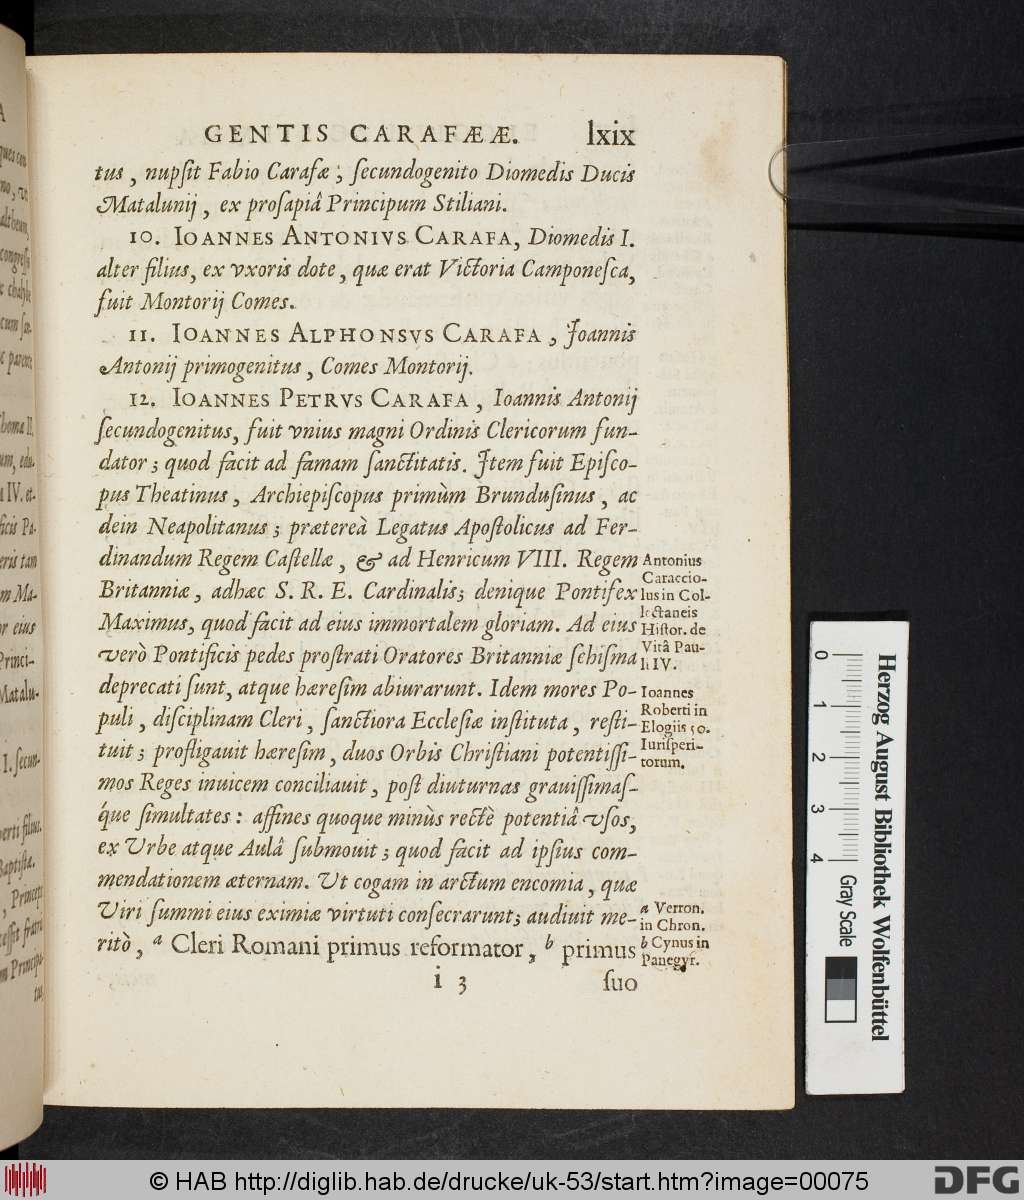 GENTIS CARAFÆÆ. lxix
tus, nupſit Fabio Carafæ; ſecundogenito Diomedis Ducis
Matalunij, ex proſapiâ Principum Stiliani.
10. IOANNES ANTONIVS CARAFA, Diomedis I.
alter filius, ex vxoris dote, quæ erat Victoria Camponeſca,
fuit Montorij Comes.
11. IOANNES ALPHONSVS CARAFA, Joannis
Antonij primogenitus, Comes Montorij.
12. IOANNES PETRVS CARAFA, Ioannis Antonij
ſecundogenitus, fuit vnius magni Ordinis Clericorum fun-
dator; quod facit ad famam ſanctitatis. Jtem fuit Epiſco-
pus Theatinus, Archiepiſcopus primùm Brunduſinus, ac
dein Neapolitanus; prætereà Legatus Apoſtolicus ad Fer-
dinandum Regem Caſtellæ, & ad Henricum VIII. Regem
Britanniæ, adhæc S. R. E. Cardinalis; denique Pontifex
Maximus, quod facit ad eius immortalem gloriam. Ad eius
verò Pontificis pedes proſtrati Oratores Britanniæ ſchiſma
deprecati ſunt, atque hæreſim abiurarunt. Idem mores Po-
puli, diſciplinam Cleri, ſanctiora Eccleſiæ inſtituta, reſti-
tuit; profligauit hæreſim, duos Orbis Chriſtiani potentiſſi-
mos Reges inuicem conciliauit, poſt diuturnas grauiſſimaſ-
q́ue ſimultates: affines quoque minùs rectè potentiâ vſos,
ex Vrbe atque Aulâ ſubmouit; quod facit ad ipſius com-
mendationem æternam. Vt cogam in arctum encomia, quæ
Viri ſummi eius eximiæ virtuti conſecrarunt; audiuit me-
ritò, a Cleri Romani primus reformator, b primus
i 3 ſuo
Antonius
Caraccio-
lus in Col-
lectaneis
Hiſtor. de
Vitâ Pau-
li IV.
Ioannes
Roberti in
Elogiis 50.
Iuriſperi-
torum.
a Verron.
in Chron.
b Cynus in
Panegyr.
Herzog August Bibliothek Wolfenbüttel
Gray Scale
0 1 2 3 4
© HAB http://diglib.hab.de/drucke/uk-53/start.htm?image=00075
DFG